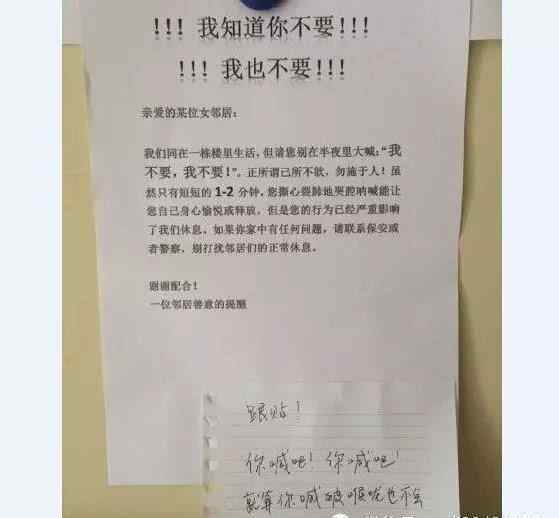 !!! 我知道你不要!!!
!!! 我也不要!!!
亲爱的某位女邻居:
我们同在一栋楼里生活,但请您别在半夜里大喊:“我
不要,我不要!”。正所谓己所不欲,勿施于人!虽
然只有短短的 1-2 分钟,您撕心裂肺地哭腔呐喊能让
您自己身心愉悦或释放,但是您的行为已经严重影响
了我们休息,如果你家中有任何问题,请联系保安或
者警察,别打扰邻居们的正常休息。
谢谢配合!
一位邻居善意的提醒
跟贴!
你喊吧!你喊吧!
就算你喊破喉咙也不会